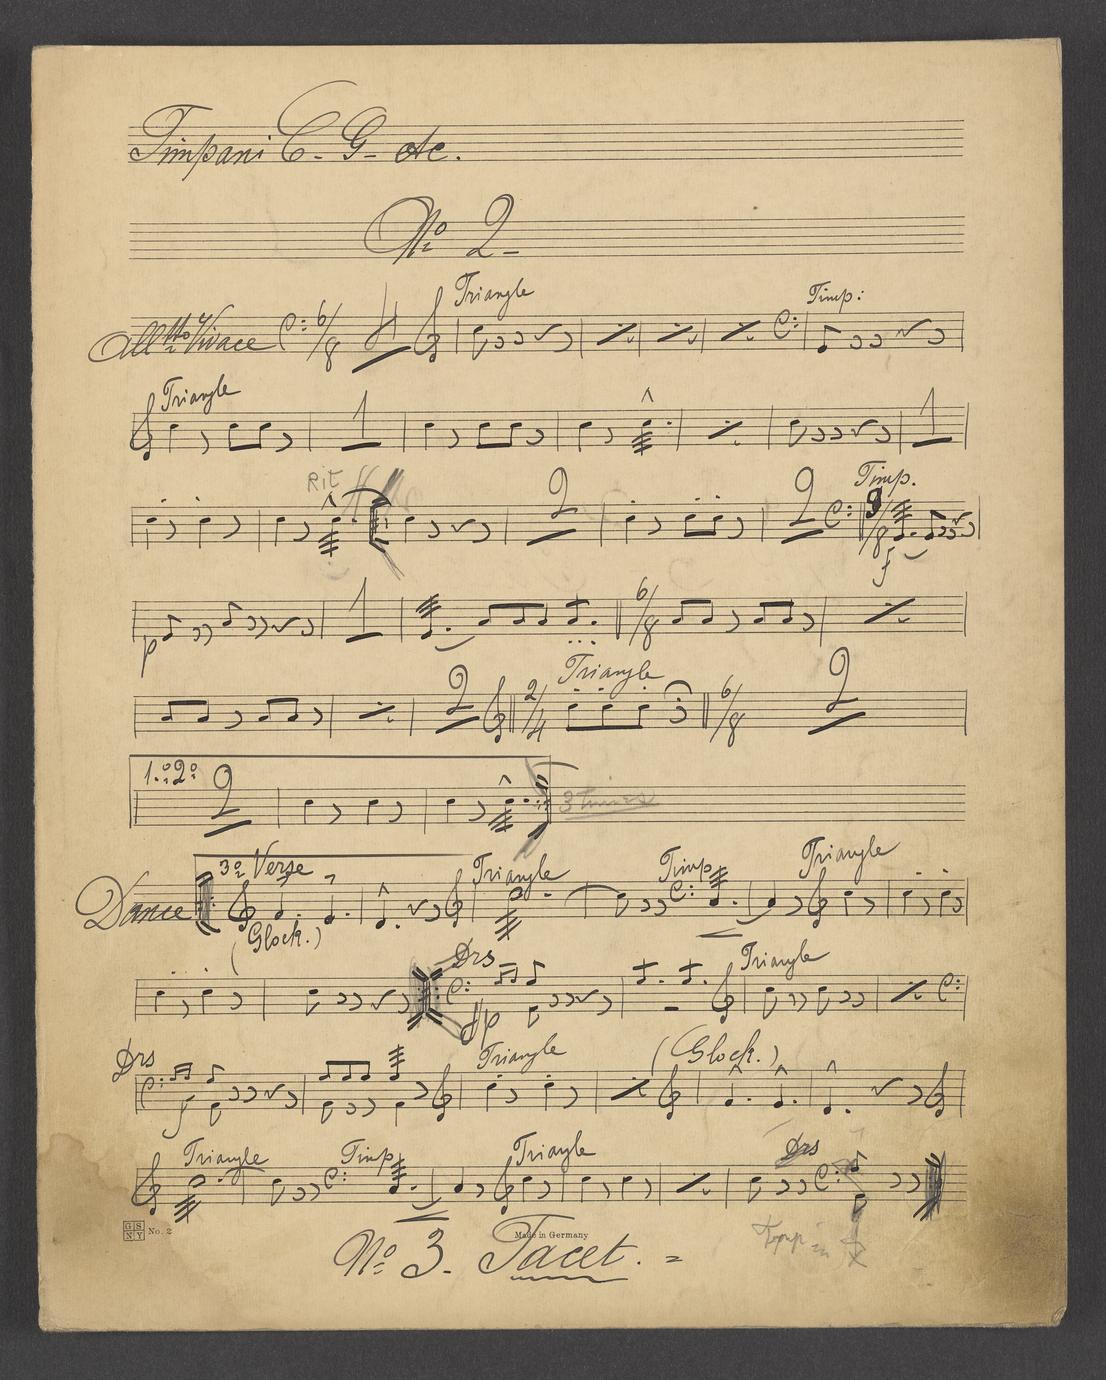 Timpani C - G - etc.
No 2 -
Alltto Vivace 6/8 Triangle Timp:
Triangle 1 1
Rit 2 2 Timp. 9/8 f
p 1 6/8
2 2/4 Triangle 6/8 2
1.o 2o 2 3 times
Dance 3o Verse (Glock.) Triangle Timp Triangle
Drs fp Triangle
Drs f Triangle (Glock.)
Triangle Timp Triangle Drs
GS NY No. 2 Made in Germany
No 3. Tacet. =